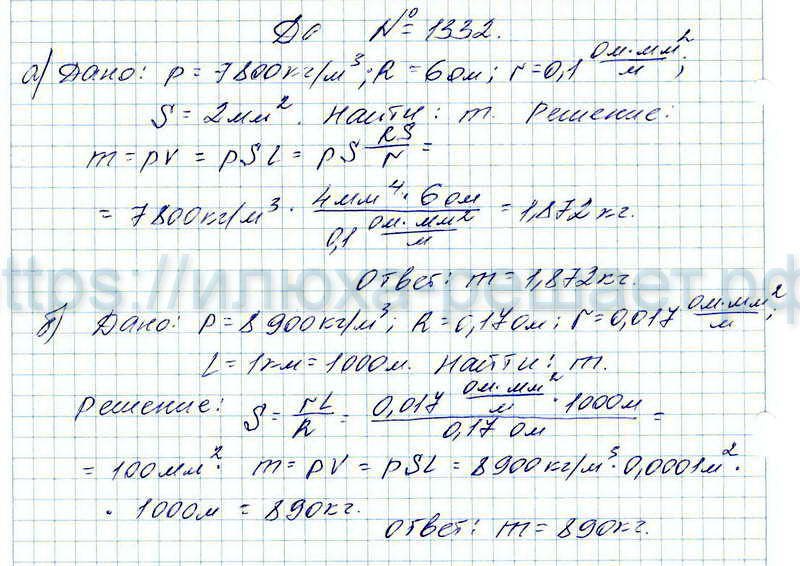 До № 1332.
а) Дано: p = 7800кг/м³; R = 6 ом; r = 0,1 ом·мм²/м;
S = 2мм². Найти: m. Решение:
m = pV = pSL = pS RS/r =
= 7800кг/м³ · 4мм⁴·6ом / 0,1 ом·мм²/м = 1,872кг.
Ответ: m = 1,872кг.
https://илюха-решает.рф
б) Дано: P = 8900кг/м³; R = 0,17ом; r = 0,017 ом·мм²/м;
L = 1км = 1000м. Найти: m.
Решение: S = rL/R = 0,017 ом·мм²/м · 1000м / 0,17 ом =
= 100мм². m = pV = pSL = 8900кг/м³ · 0,0001м² ·
· 1000м = 890кг.
Ответ: m = 890кг.